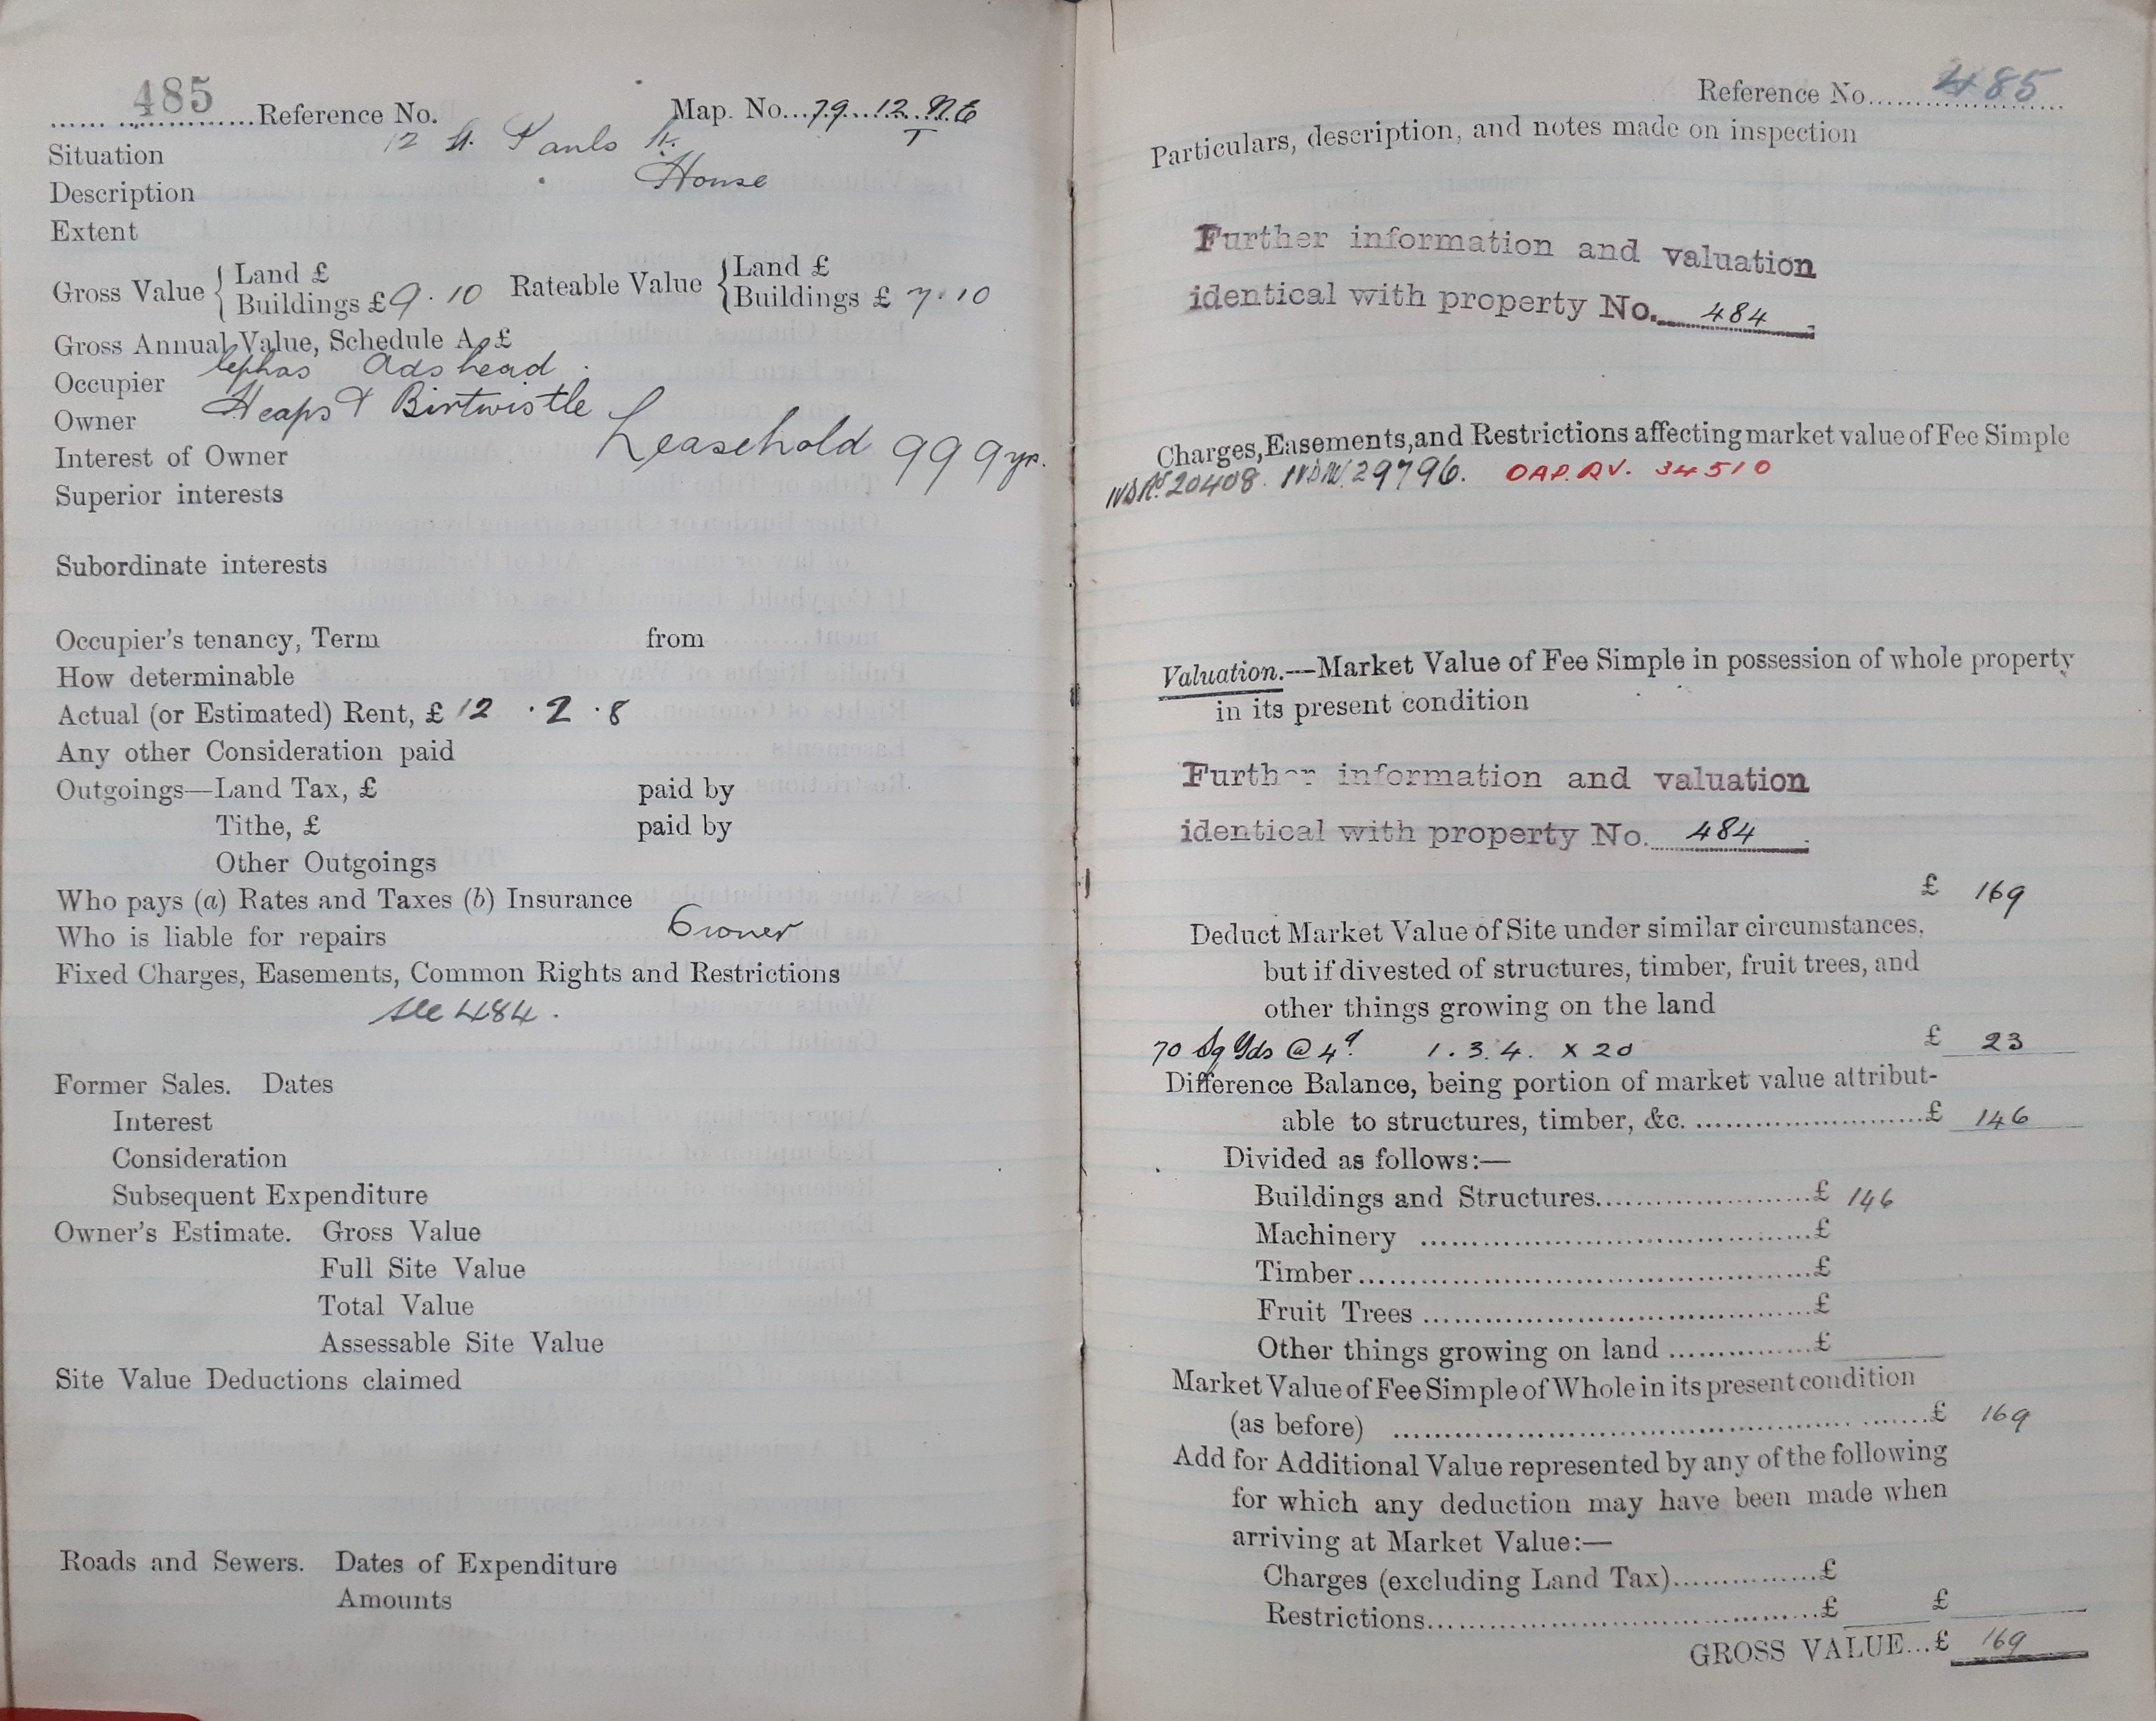 485 Reference No. Map. No...79...12..N.E
T
Situation 12 St. Pauls St.
Description House
Extent
Gross Value { Land £ Rateable Value { Land £
Buildings £ 9 . 10 Buildings £ 7 . 10
Gross Annual Value, Schedule A, £
Occupier Cephas Adshead
Owner Heaps & Birtwistle
Interest of Owner Leasehold 999 yrs.
Superior interests
Subordinate interests
Occupier's tenancy, Term from
How determinable
Actual (or Estimated) Rent, £ 12 . 2 . 8
Any other Consideration paid
Outgoings—Land Tax, £ paid by
Tithe, £ paid by
Other Outgoings
Who pays (a) Rates and Taxes (b) Insurance
Who is liable for repairs Owner
Fixed Charges, Easements, Common Rights and Restrictions
see 484.
Former Sales. Dates
Interest
Consideration
Subsequent Expenditure
Owner's Estimate. Gross Value
Full Site Value
Total Value
Assessable Site Value
Site Value Deductions claimed
Roads and Sewers. Dates of Expenditure
Amounts
Reference No. 485
Particulars, description, and notes made on inspection
Further information and valuation
identical with property No. 484
Charges, Easements, and Restrictions affecting market value of Fee Simple
20408. 29796. OAP. RV. 34510
Valuation.—Market Value of Fee Simple in possession of whole property
in its present condition
Further information and valuation
identical with property No. 484
£ 169
Deduct Market Value of Site under similar circumstances,
but if divested of structures, timber, fruit trees, and
other things growing on the land
70 Sq Yds @ 4d. 1 . 3 . 4 . x 20 £ 23
Difference Balance, being portion of market value attribut-
able to structures, timber, &c. £ 146
Divided as follows:—
Buildings and Structures £ 146
Machinery £
Timber £
Fruit Trees £
Other things growing on land £
Market Value of Fee Simple of Whole in its present condition
(as before) £ 169
Add for Additional Value represented by any of the following
for which any deduction may have been made when
arriving at Market Value:—
Charges (excluding Land Tax) £
Restrictions £ £
GROSS VALUE...£ 169